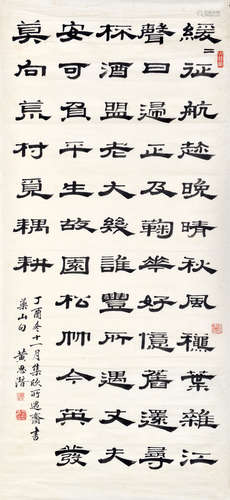 緩〻征航趁晚晴秋風葉雜江
聲日邊正及鞠華好憶舊還尋
杯酒盟老大幾誰豐所遇丈夫
安可負平生故園松竹今英發
莫向荒村覓耦耕
丁酉冬十一月集欣所遇齋書
巢山句 黃思潛